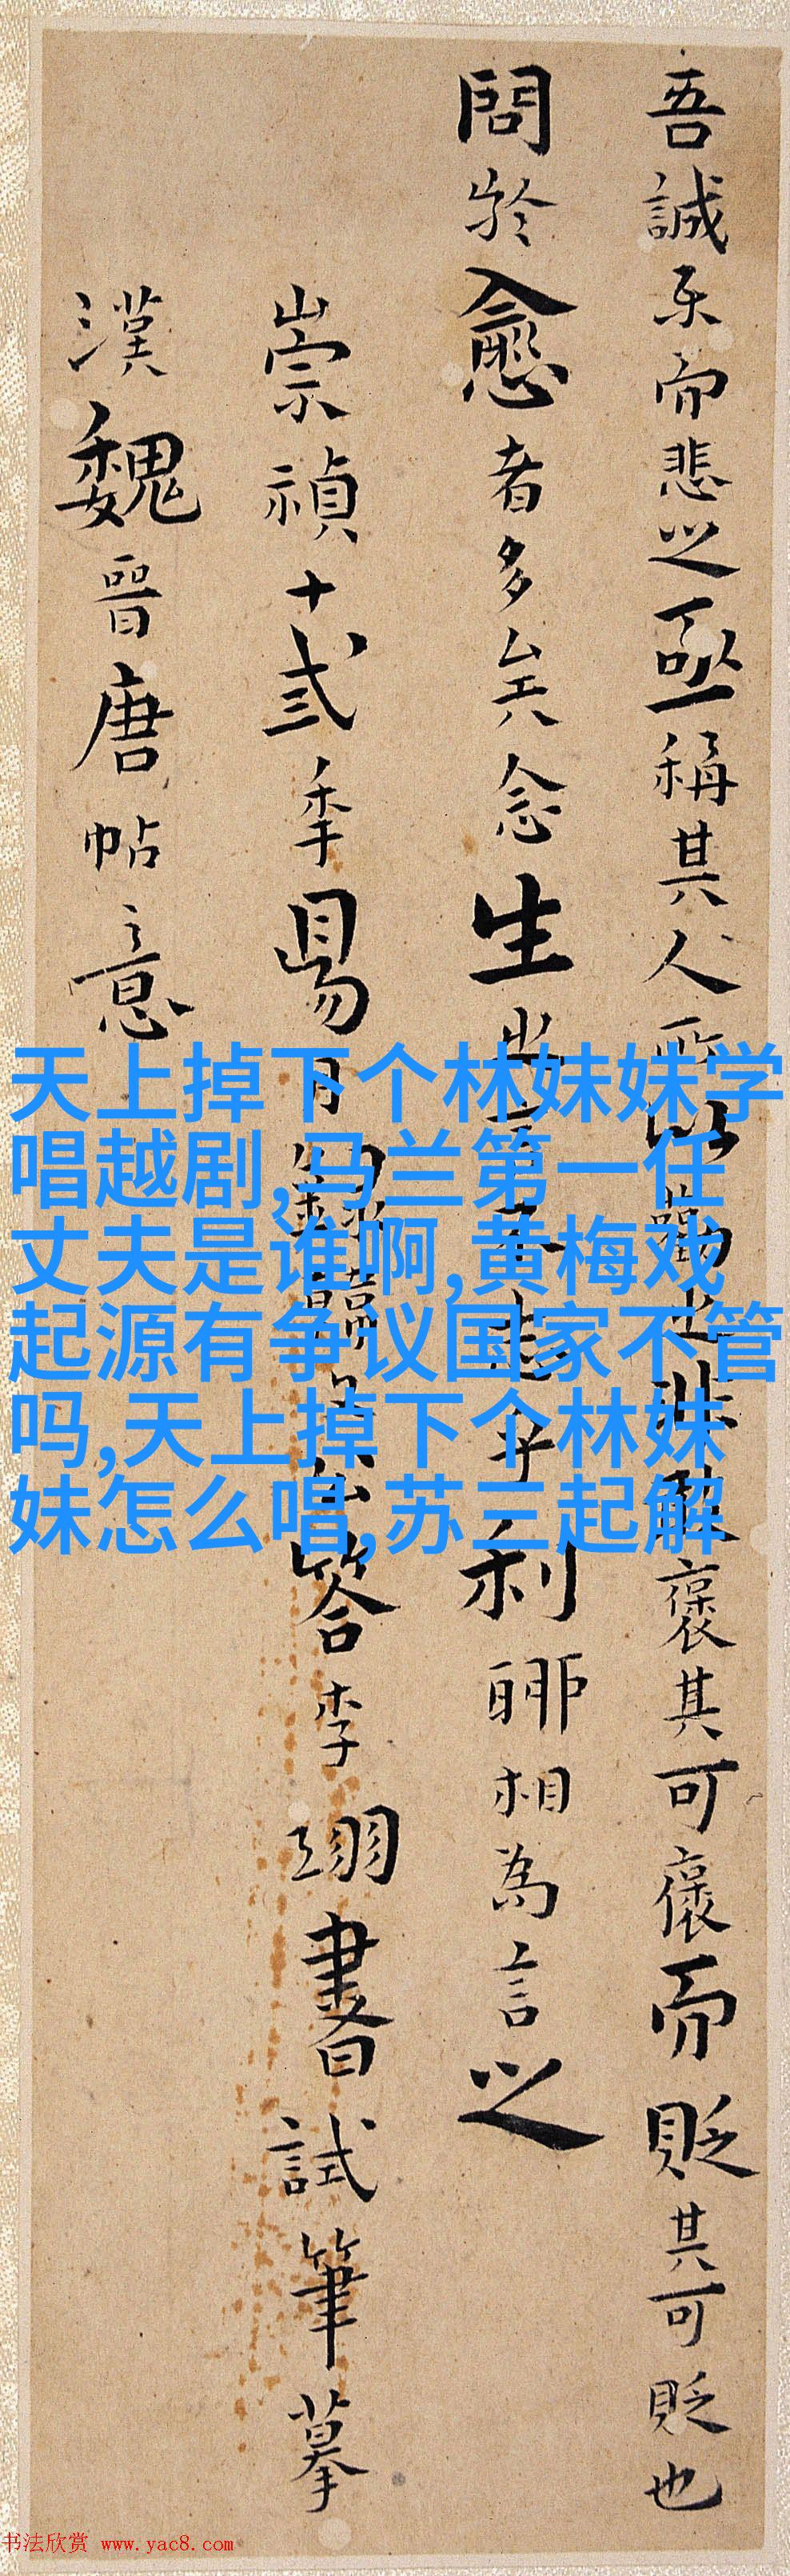 吾誠樂而悲之亟稱其人所以勸之非敢褒其可褒而貶其可貶也
問於愈者多矣念生之言不志乎利聊相為言之
崇禎十弎季昜月公答李翊書試筆摹
漢魏晉唐帖意
天上掉下个林妹妹学
唱越剧,马兰第一任
丈夫是谁啊,黄梅戏
起源有争议国家不管
吗,天上掉下个林妹
妹怎么唱,苏三起解
书法欣赏 www.yac8.com